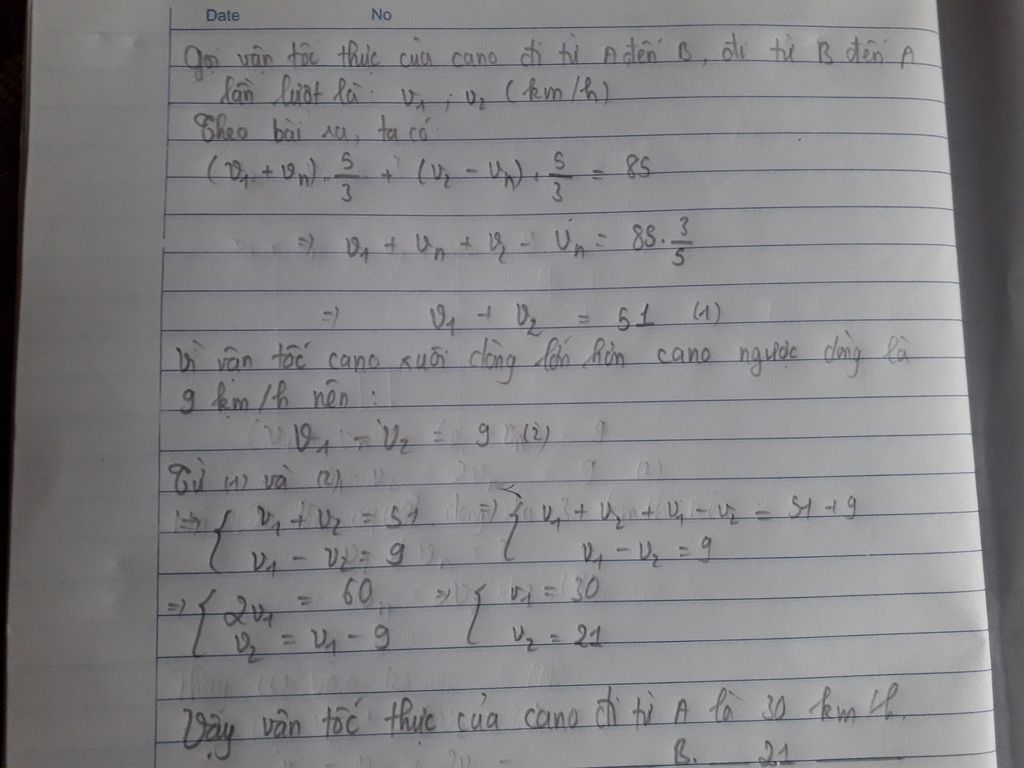 Date No
Gọi vận tốc thực của cano đi từ A đến B, đi từ B đến A
lần lượt là: v₁ ; v₂ (km/h)
Theo bài ra, ta có
(v₁ + vₙ) . 5/3 + (v₂ - vₙ) . 5/3 = 85
=> v₁ + vₙ + v₂ - vₙ = 85 . 3/5
=> v₁ + v₂ = 51 (1)
Vì vận tốc cano xuôi dòng lớn hơn cano ngược dòng là
9 km/h nên :
v₁ - v₂ = 9 (2)
Từ (1) và (2)
=> { v₁ + v₂ = 51 => { v₁ + v₂ + v₁ - v₂ = 51 + 9
v₁ - v₂ = 9 v₁ - v₂ = 9
=> { 2v₁ = 60 => { v₁ = 30
v₂ = v₁ - 9 v₂ = 21
Vậy vận tốc thực của cano đi từ A là 30 km/h.
B. 21